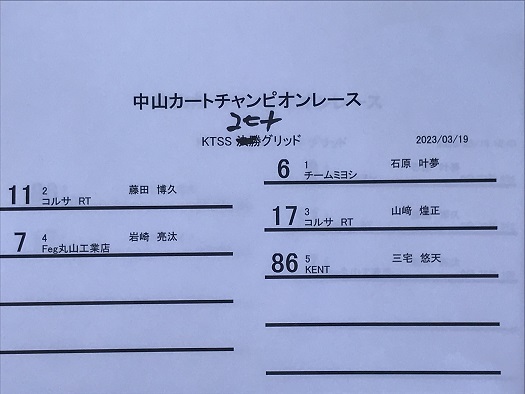 中山カートチャンピオンレース
2ヒート
KTSS 決勝グリッド
2023/03/19
6 1 石原 叶夢
チームミヨシ
11 2 藤田 博久
コルサ RT
17 3 山﨑 煌正
コルサ RT
7 4 岩崎 亮汰
Feg丸山工業店
86 5 三宅 悠天
KENT